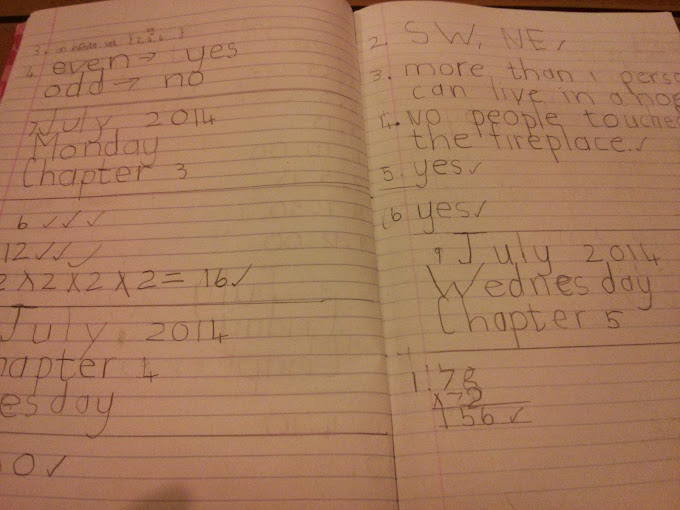 3.
4. even → yes
odd → no
7 July 2014
Monday
Chapter 3
6 ✓✓✓
12 ✓✓✓
2 x 2 x 2 x 2 = 16 ✓
July 2014
hapter 4
esday
0 ✓
2. SW, NE ✓
3. more than 1 perso
can live in a
4. No people touche
the fireplace. ✓
5. yes ✓
6 yes ✓
9 July 2014
Wednesday
Chapter 5
1. 78
x 2
156 ✓